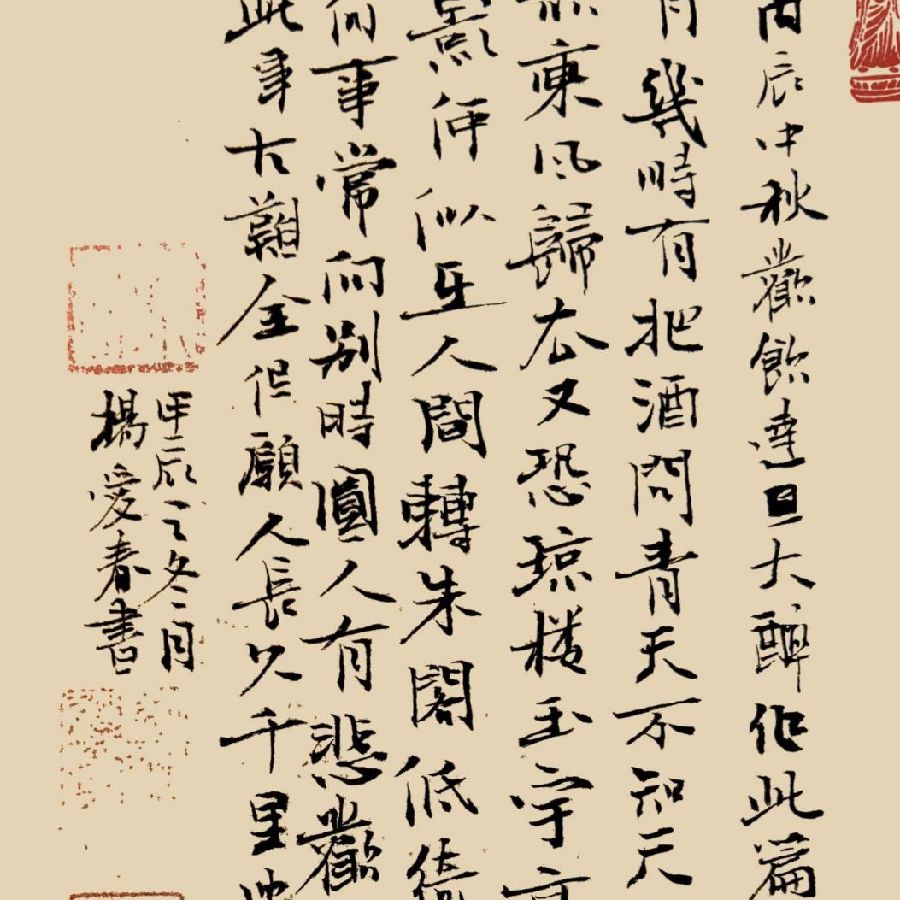 丙辰中秋歡飲達旦大醉作此篇
月幾時有把酒問青天不知天
乘風歸去又恐瓊樓玉宇高
影何似在人間轉朱閣低綺
何事常向別時圓人有悲歡
此事古難全但願人長久千里
甲辰之冬月
楊愛春書